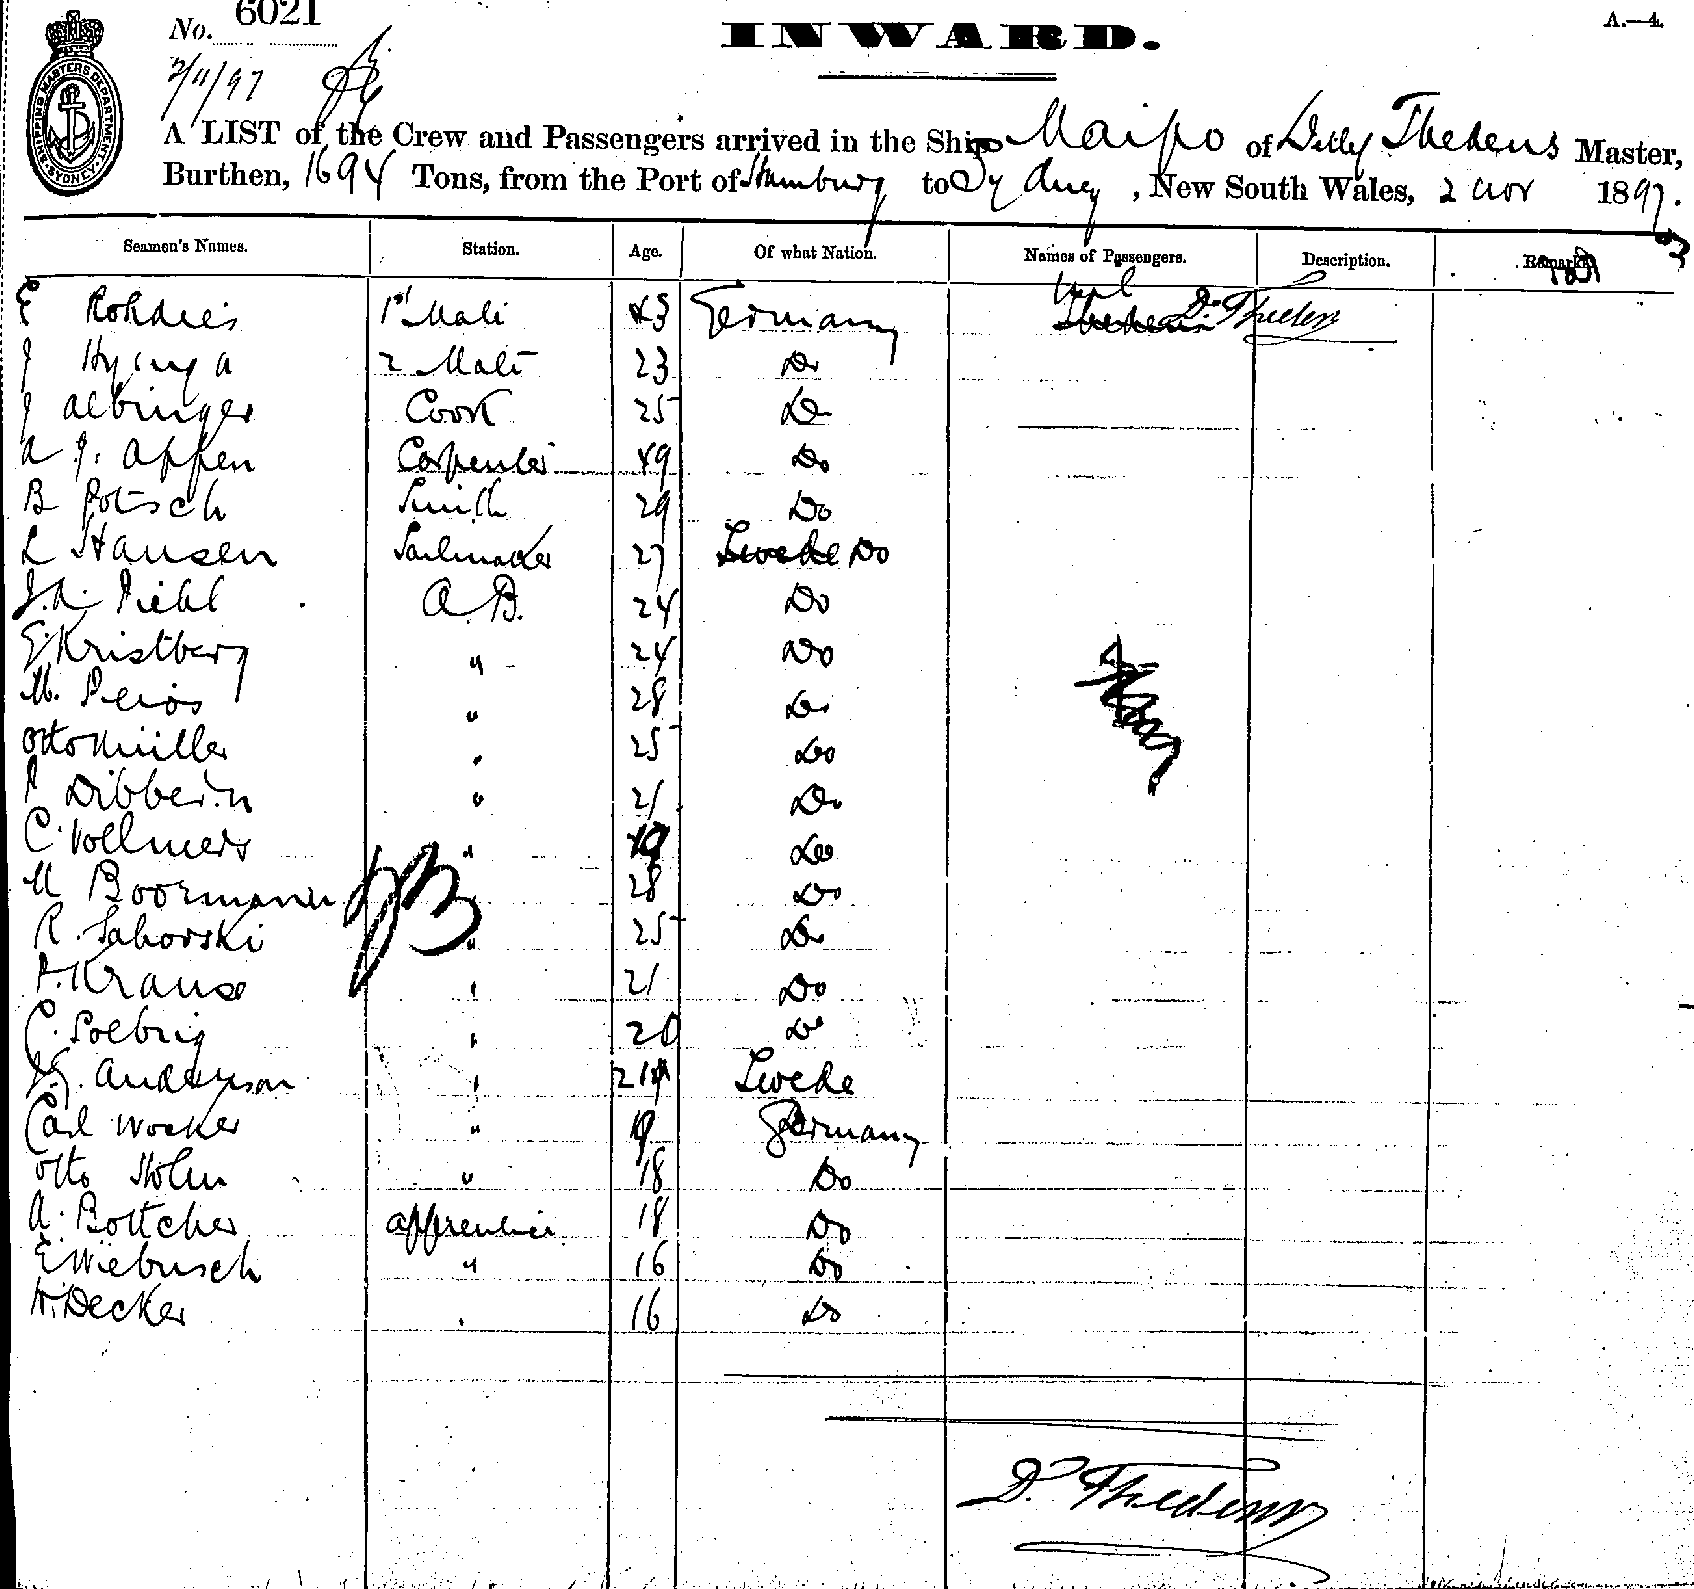 No. 6021
INWARD.
A.—4.
2/11/97
SHIPPING MASTERS DEPARTMENT SYDNEY
A LIST of the Crew and Passengers arrived in the Ship Maipo of Detlef Thedens Master,
Burthen, 1694 Tons, from the Port of Hamburg to Sydney, New South Wales, 2 Nov 1897.
Seamen's Names. Station. Age. Of what Nation. Names of Passengers. Description. Remarks
E Rohdies 1st Mate 43 Germany D. Thedens
J Hyinga 2 Mate 23 Do
J Albinger Cook 25 Do
A J. Appen Carpenter 49 Do
B Potsch Smith 29 Do
L Hansen Sailmaker 27 Swede Do
J.A. Piehl A.B. 24 Do
E. Kristberg " 24 Do
M. Peios " 28 Do
Otto Müller " 25 Do
Dibbern " 21 Do
C. Vollmers " 19 Do
M Boormann " 28 Do
R. Sahorski " 25 Do
Krause " 21 Do
C. Soebrig " 20 Do
J.G. Anderson " 21 Swede
Carl Wocker " 19 Germany
Otto Holm " 18 Do
A. Bottcher apprentice 18 Do
E Wiebusch " 16 Do
H. Decker " 16 Do
D. Thedens